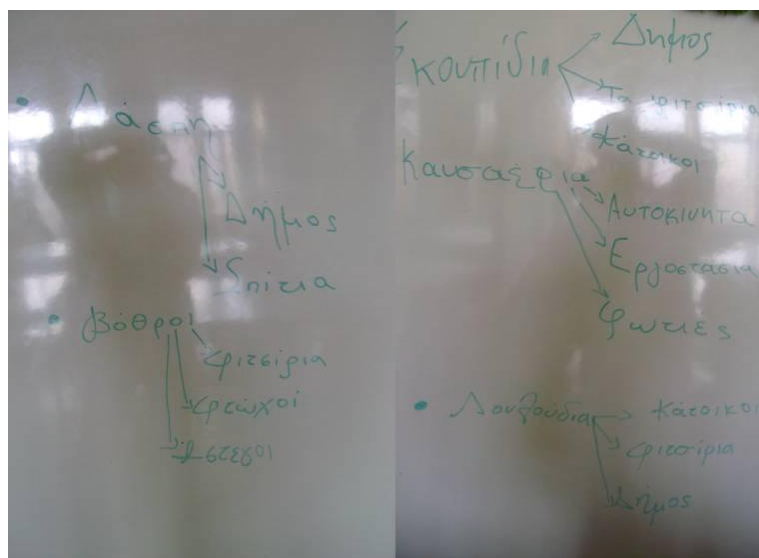 • Δάσπη
Δήμος
Σπίτια
• Βόθροι
Φριτσίρια
Φτωχοί
Άστεγοι
Σκουπίδια
Δημος
Τα φριτσίρια
Κάτοικοι
Καυσαέρια
Αυτοκινητα
Εργοστασια
φωτιες
• Λουλούδια
Κάτοικοι
φριτσίρια
Δήμος